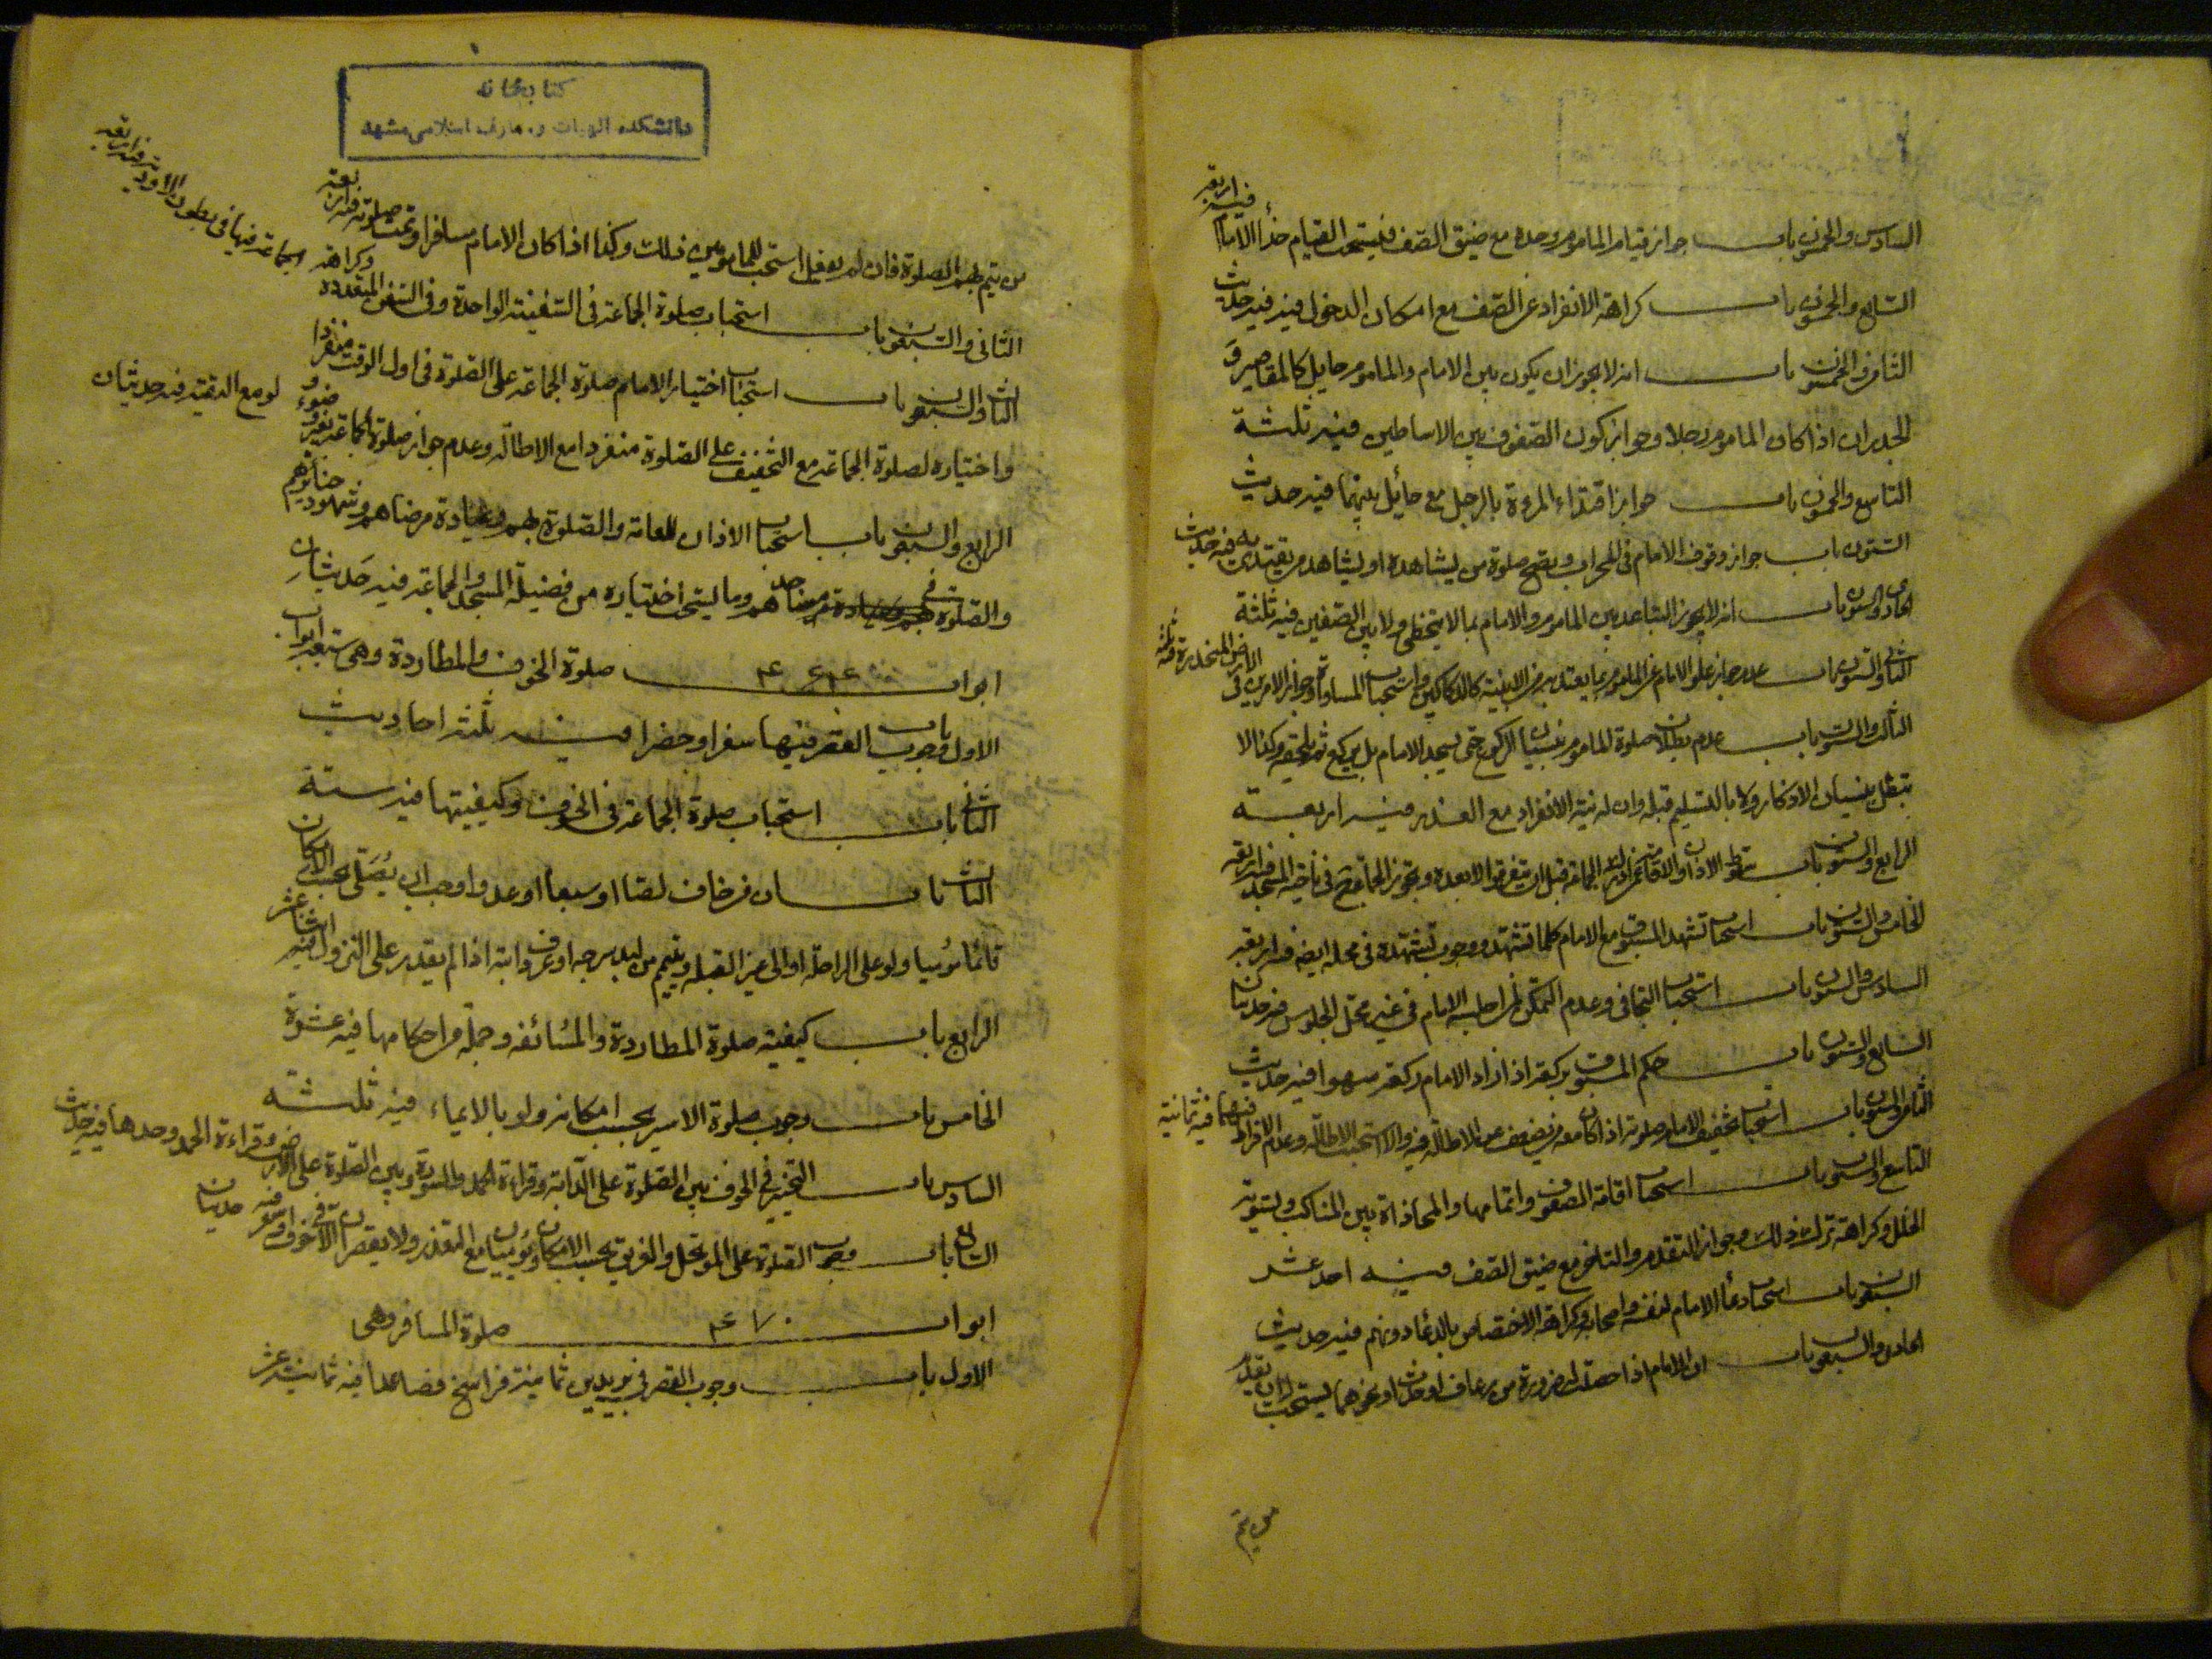 السادس والخمسون باب جواز قيام الماموم وحده مع ضيق الصف فيستحب القيام حذاء الامام فيه اربعة
السابع والخمسون باب كراهة الانفراد عن الصف مع امكان الدخول فيه فيه حديث
الثامن والخمسون باب انه لا يجوز ان يكون بين الامام والماموم حايل كالمقاصير و
الجدران اذا كان الماموم رجلا وجواز كون الصفوف بين الاساطين فيه ثلثة
التاسع والخمسون باب جواز اقتداء المرءة بالرجل مع حائل بينهما فيه حديث
الستون باب جواز وقوف الامام فى المحراب وتصح صلوة من يشاهده او يشاهد من يقتدى به فيه حديث
الحادى والستون باب انه لا يجوز التباعد بين الماموم والامام بما لا يتخطى ولا بين الصفين فيه ثلثة
الثانى والستون باب عدم جواز علو الامام عن الماموم بما يعتد به من الابنية كالدكاكين واستحباب المساواة وجواز الامرين فى الارض المنحدرة فيه ثلثة
الثالث والستون باب عدم بطلان صلوة الماموم بنسيان الركوع حتى يسجد الامام بل يركع ثم يلحقه وكذا لا
تبطل بنسيان الاذكار ولا بالتسليم قبله وان له نية الانفراد مع العذر فيه اربعة
الرابع والستون باب سقوط الاذان والاقامة عمن ادرك الجماعة قبل ان يتفرقوا لا بعده ويجوز الجماعة ح فى ناحية المسجد فيه اربعة
الخامس والستون باب استحباب تشهد المسبوق مع الامام كلما تشهد ووجوب تشهده فى محله ايضا فيه اربعة
السادس والستون باب استحباب التجافى وعدم التمكن لمن اجلسه الامام فى غير محل الجلوس فيه حديثان
السابع والستون باب حكم المسبوق بركعة اذا زاد الامام ركعة سهوا فيه حديث
الثامن والستون باب استحباب تخفيف الامام صلوته اذا كان معه من يضعف عن الاطالة فيه والا استحب الاطالة وعدم الافراط فيهما فيه ثمانية
التاسع والستون باب استحباب اقامة الصفوف واتمامها والمحاذاة بين المناكب وتسوية
الخلل وكراهة ترك ذلك وجواز التقدم والتاخر مع ضيق الصف فيه احد عشر
السبعون باب استحباب دعاء الامام لنفسه واصحابه وكراهة الاختصاص بالدعاء دونهم فيه حديث
الحادى والسبعون باب ان الامام اذا حصلت له ضرورة من رعاف او حدث او نحوهما يستحب له ان يقدم
من يتم
كتابخانه
دانشكده الهيات و معارف اسلامى مشهد
من يتم بهم الصلوة فان لم يفعل استحب للمامومين ذلك وكذا اذا كان الامام مسافرا وتمت صلوته فيه اربعة
الثانى والسبعون باب استحباب صلوة الجماعة فى السفينة الواحدة وفى السفن المتعددة وكراهة الجماعة فيها فى بطون الاودية فيه اربعة
الثالث والسبعون باب استحباب اختيار الامام صلوة الجماعة على الصلوة فى اول الوقت منفردا
واختياره لصلوة الجماعة مع التخفيف على الصلوة منفردا مع الاطالة وعدم جواز صلوة الجماعة بغير وضوء ولو مع التقية فيه حديثان
الرابع والسبعون باب استحباب الاذان للعامة والصلوة بهم وعيادة مرضاهم وشهود جنائزهم
والصلوة فى مساجدهم وما يستحب اختياره من فضيلة المسجد والجماعة فيه حديثان
ابواب صلوة الخوف والمطاردة وهى سبعة ابواب
الاول باب وجوب القصر فيها سفرا وحضرا فيه ثلثة احاديث
الثانى باب استحباب صلوة الجماعة فى الخوف وكيفيتها فيه ستة
الثالث باب ان من خاف لصا او سبعا او عدوا وجب ان يصلى بحسب الامكان
قائما موميا ولو على الراحلة او الى غير القبلة ويتيمم من لبد سرجه او عرف دابته اذا لم يقدر على النزول فيه اثنا عشر
الرابع باب كيفية صلوة المطاردة والمسائفه وجملة من احكامها فيه عشرة
الخامس باب وجوب صلوة الاسير بحسب امكانه ولو بالايماء فيه ثلثة
السادس باب التخيير فى الخوف بين الصلوة على الدابة وقراءة الحمد والسورة وبين الصلوة على الارض وقراءة الحمد وحدها فيه حديث
السابع باب وجوب الصلوة على الموتحل والغريق بحسب الامكان ويوميان مع التعذر ولا يقصران الا فى خوف او سفر فيه حديثان
ابواب صلوة المسافر وهى
الاول باب وجوب القصر فى بريدين ثمانية فراسخ فصاعدا فيه ثمانية عشر